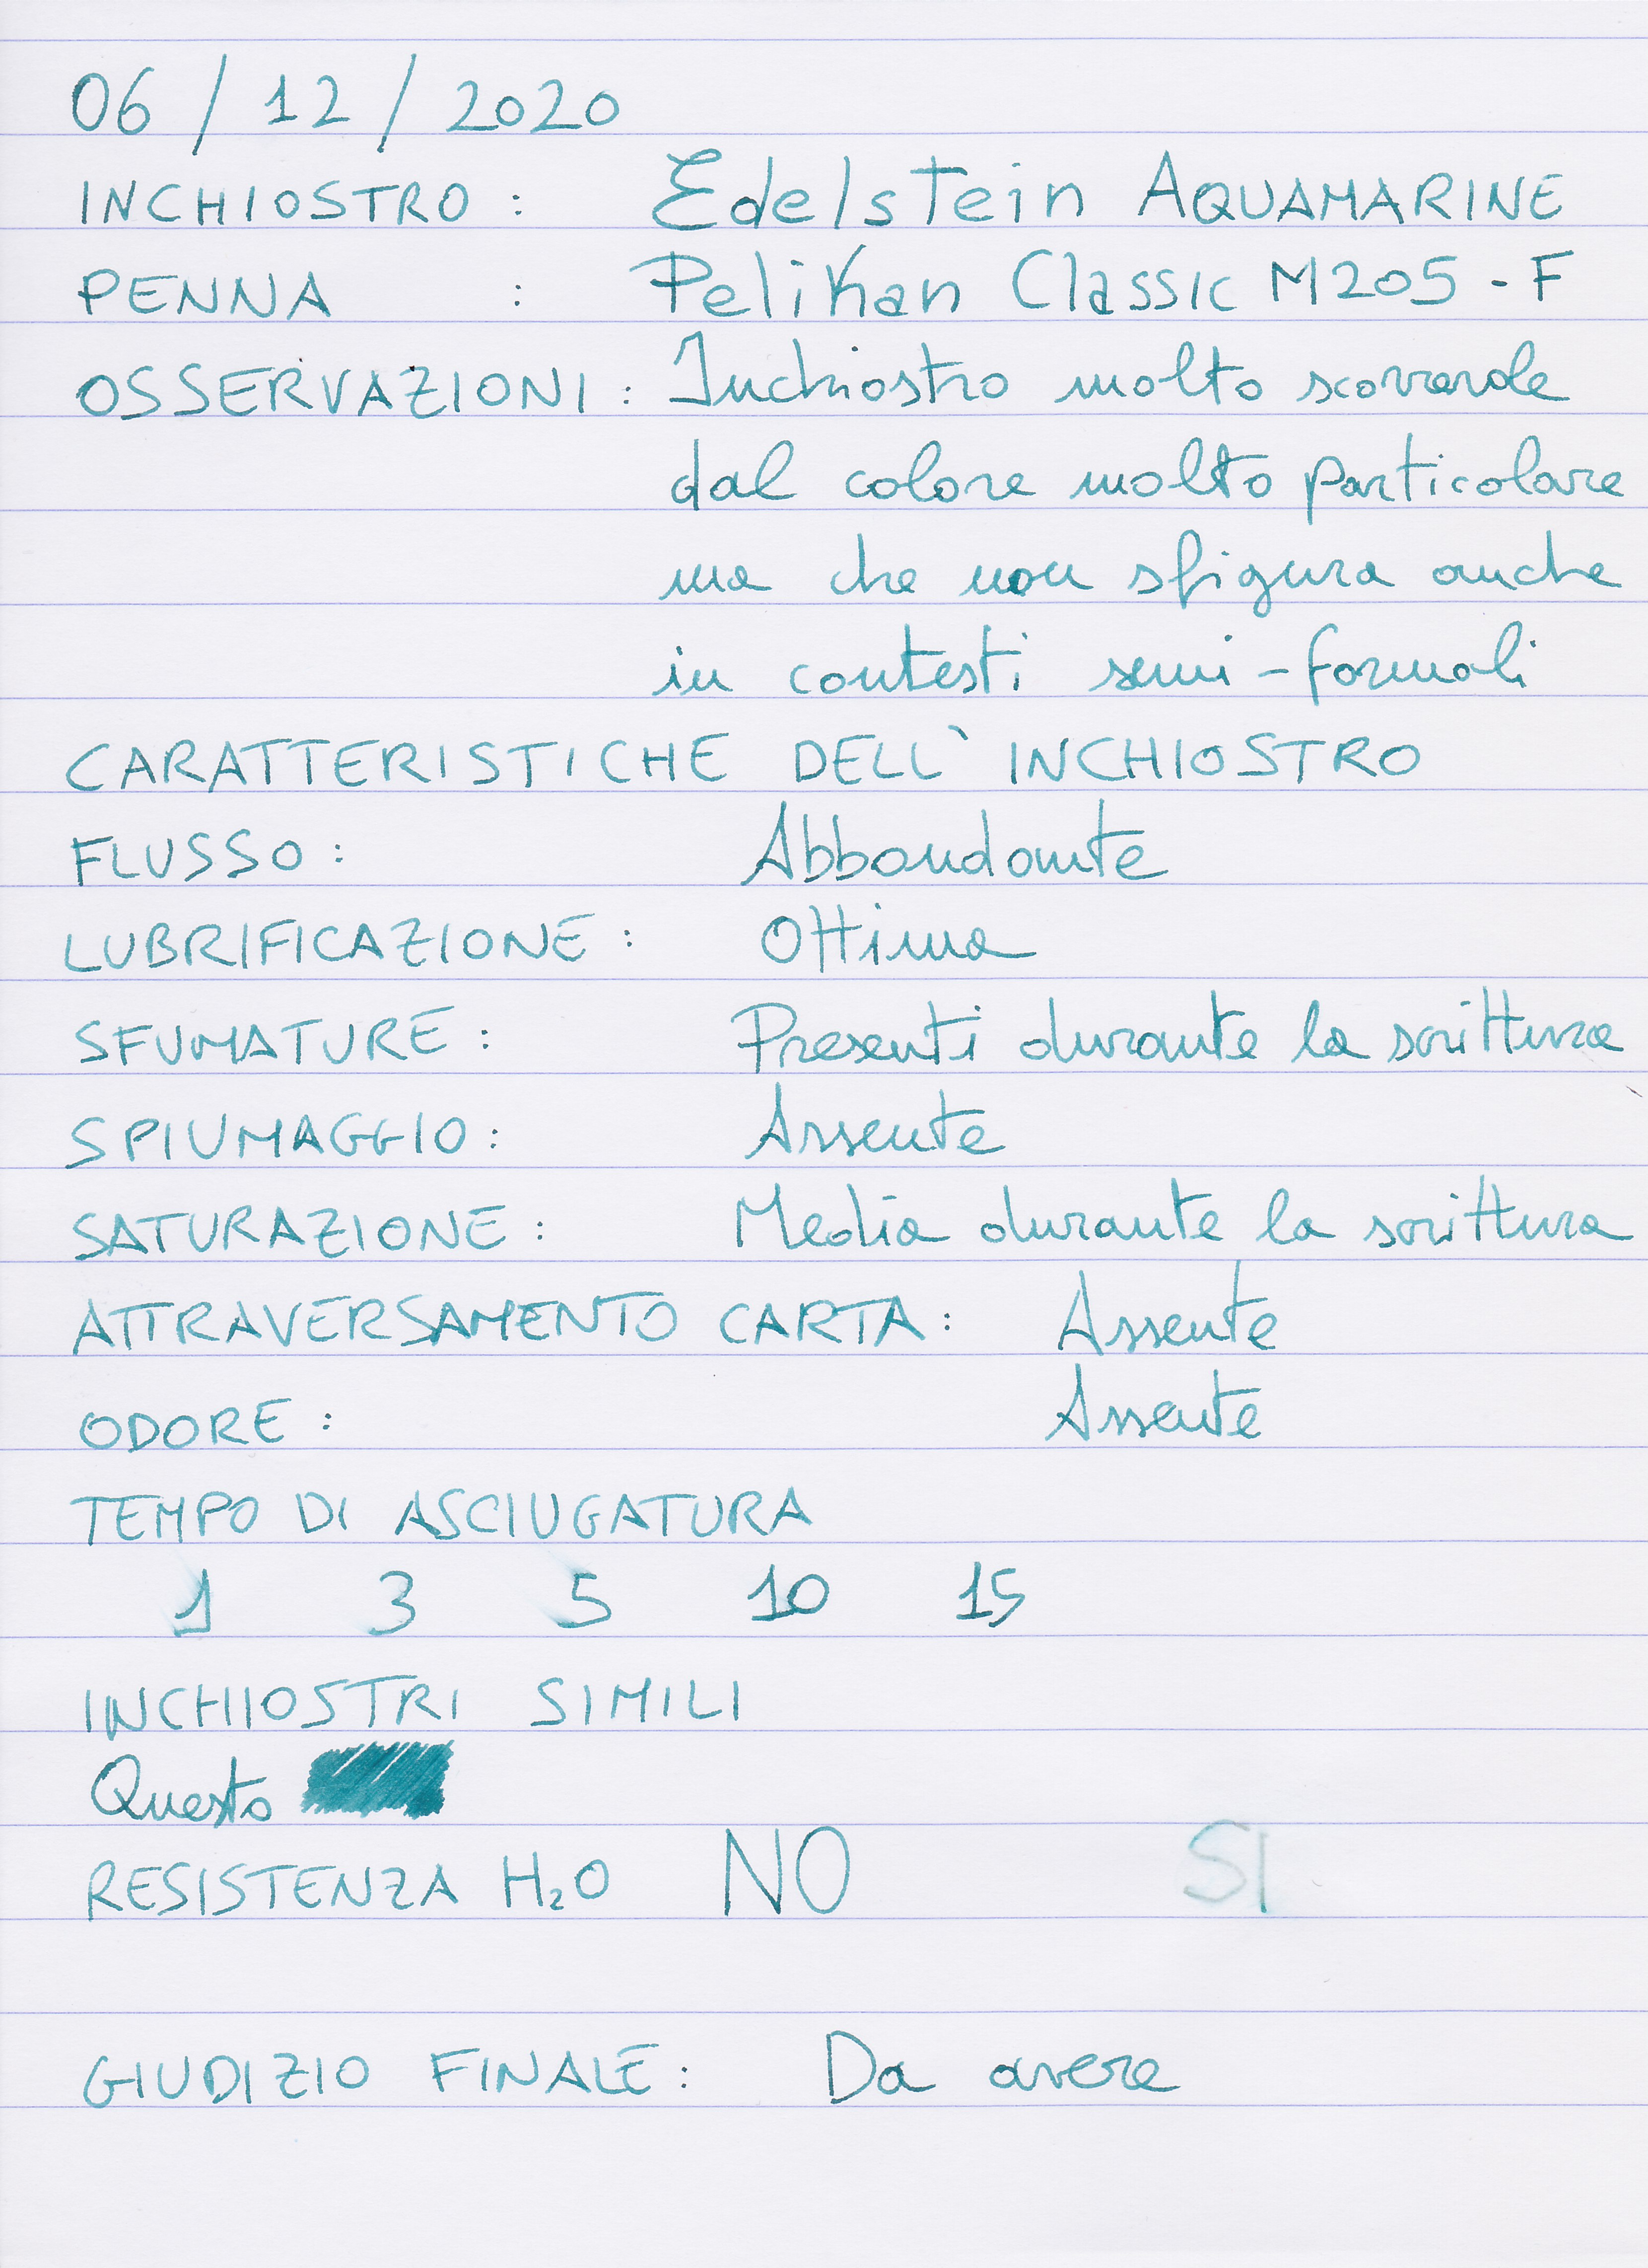 06 / 12 / 2020
INCHIOSTRO : Edelstein AQUAMARINE
PENNA : Pelikan Classic M205 - F
OSSERVAZIONI : Inchiostro molto scorrevole
dal colore molto particolare
ma che non sfigura anche
in contesti semi-formali
CARATTERISTICHE DELL'INCHIOSTRO
FLUSSO : Abbondante
LUBRIFICAZIONE : Ottima
SFUMATURE : Presenti durante la scrittura
SPIUMAGGIO : Assente
SATURAZIONE : Media durante la scrittura
ATTRAVERSAMENTO CARTA : Assente
ODORE : Assente
TEMPO DI ASCIUGATURA
1 3 5 10 15
INCHIOSTRI SIMILI
Questo
RESISTENZA H₂O NO SI
GIUDIZIO FINALE : Da avere